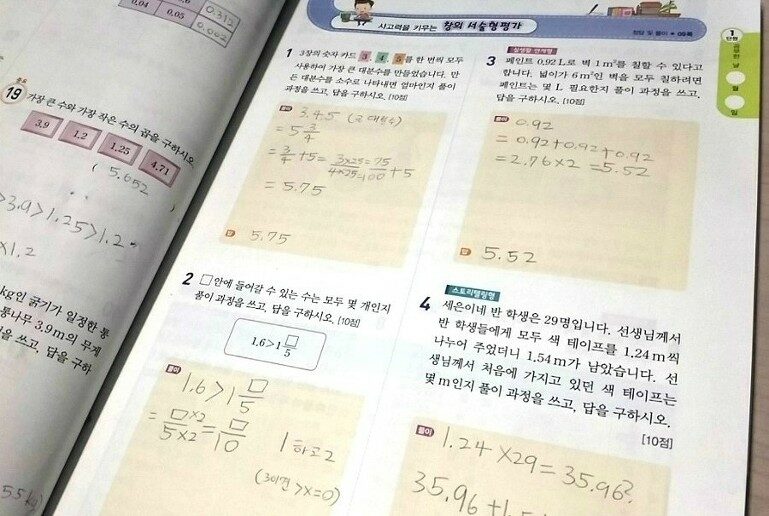 0.04
0.05
0.312
0.002
중요
19 가장 큰 수와 가장 작은 수의 곱을 구하시오.
3.9
1.2
1.25
4.71
( 5.652 )
>3.9>1.25>1.2
×1.2
kg인 굵기가 일정한 통
통나무 3.9 m의 무게
을 쓰고, 답을 구하
5.5 kg)
사고력을 키우는 창의 서술형평가
정답 및 풀이
1
단원
공부한 날
월
일
1 3장의 숫자 카드 3, 4, 5를 한 번씩 모두
사용하여 가장 큰 대분수를 만들었습니다. 만
든 대분수를 소수로 나타내면 얼마인지 풀이
과정을 쓰고, 답을 구하시오. [10점]
풀이
3.4.5
= 5 3/4
= 3/4 +5= 3×25/4×25 = 75/100 +5
= 5.75
답 5.75
2 □안에 들어갈 수 있는 수는 모두 몇 개인지
풀이 과정을 쓰고, 답을 구하시오. [10점]
1.6>1 □/5
풀이
1.6>1 □/5
= □×2/5×2 = 1 □/10
1하고2
(3이면 >x=0)
실생활 연계형
3 페인트 0.92 L로 벽 1 m²를 칠할 수 있다고
합니다. 넓이가 6 m²인 벽을 모두 칠하려면
페인트는 몇 L 필요한지 풀이 과정을 쓰고,
답을 구하시오. [10점]
풀이
0.92
= 0.92+0.92+0.92
= 2.76×2 =5.52
답 5.52
스토리텔링형
4 세은이네 반 학생은 29명입니다. 선생님께서
반 학생들에게 모두 색 테이프를 1.24 m씩
나누어 주었더니 1.54 m가 남았습니다. 선
생님께서 처음에 가지고 있던 색 테이프는
몇 m인지 풀이 과정을 쓰고, 답을 구하시오.
[10점]
풀이
1.24 ×29= 35.96
35.96 +1.5